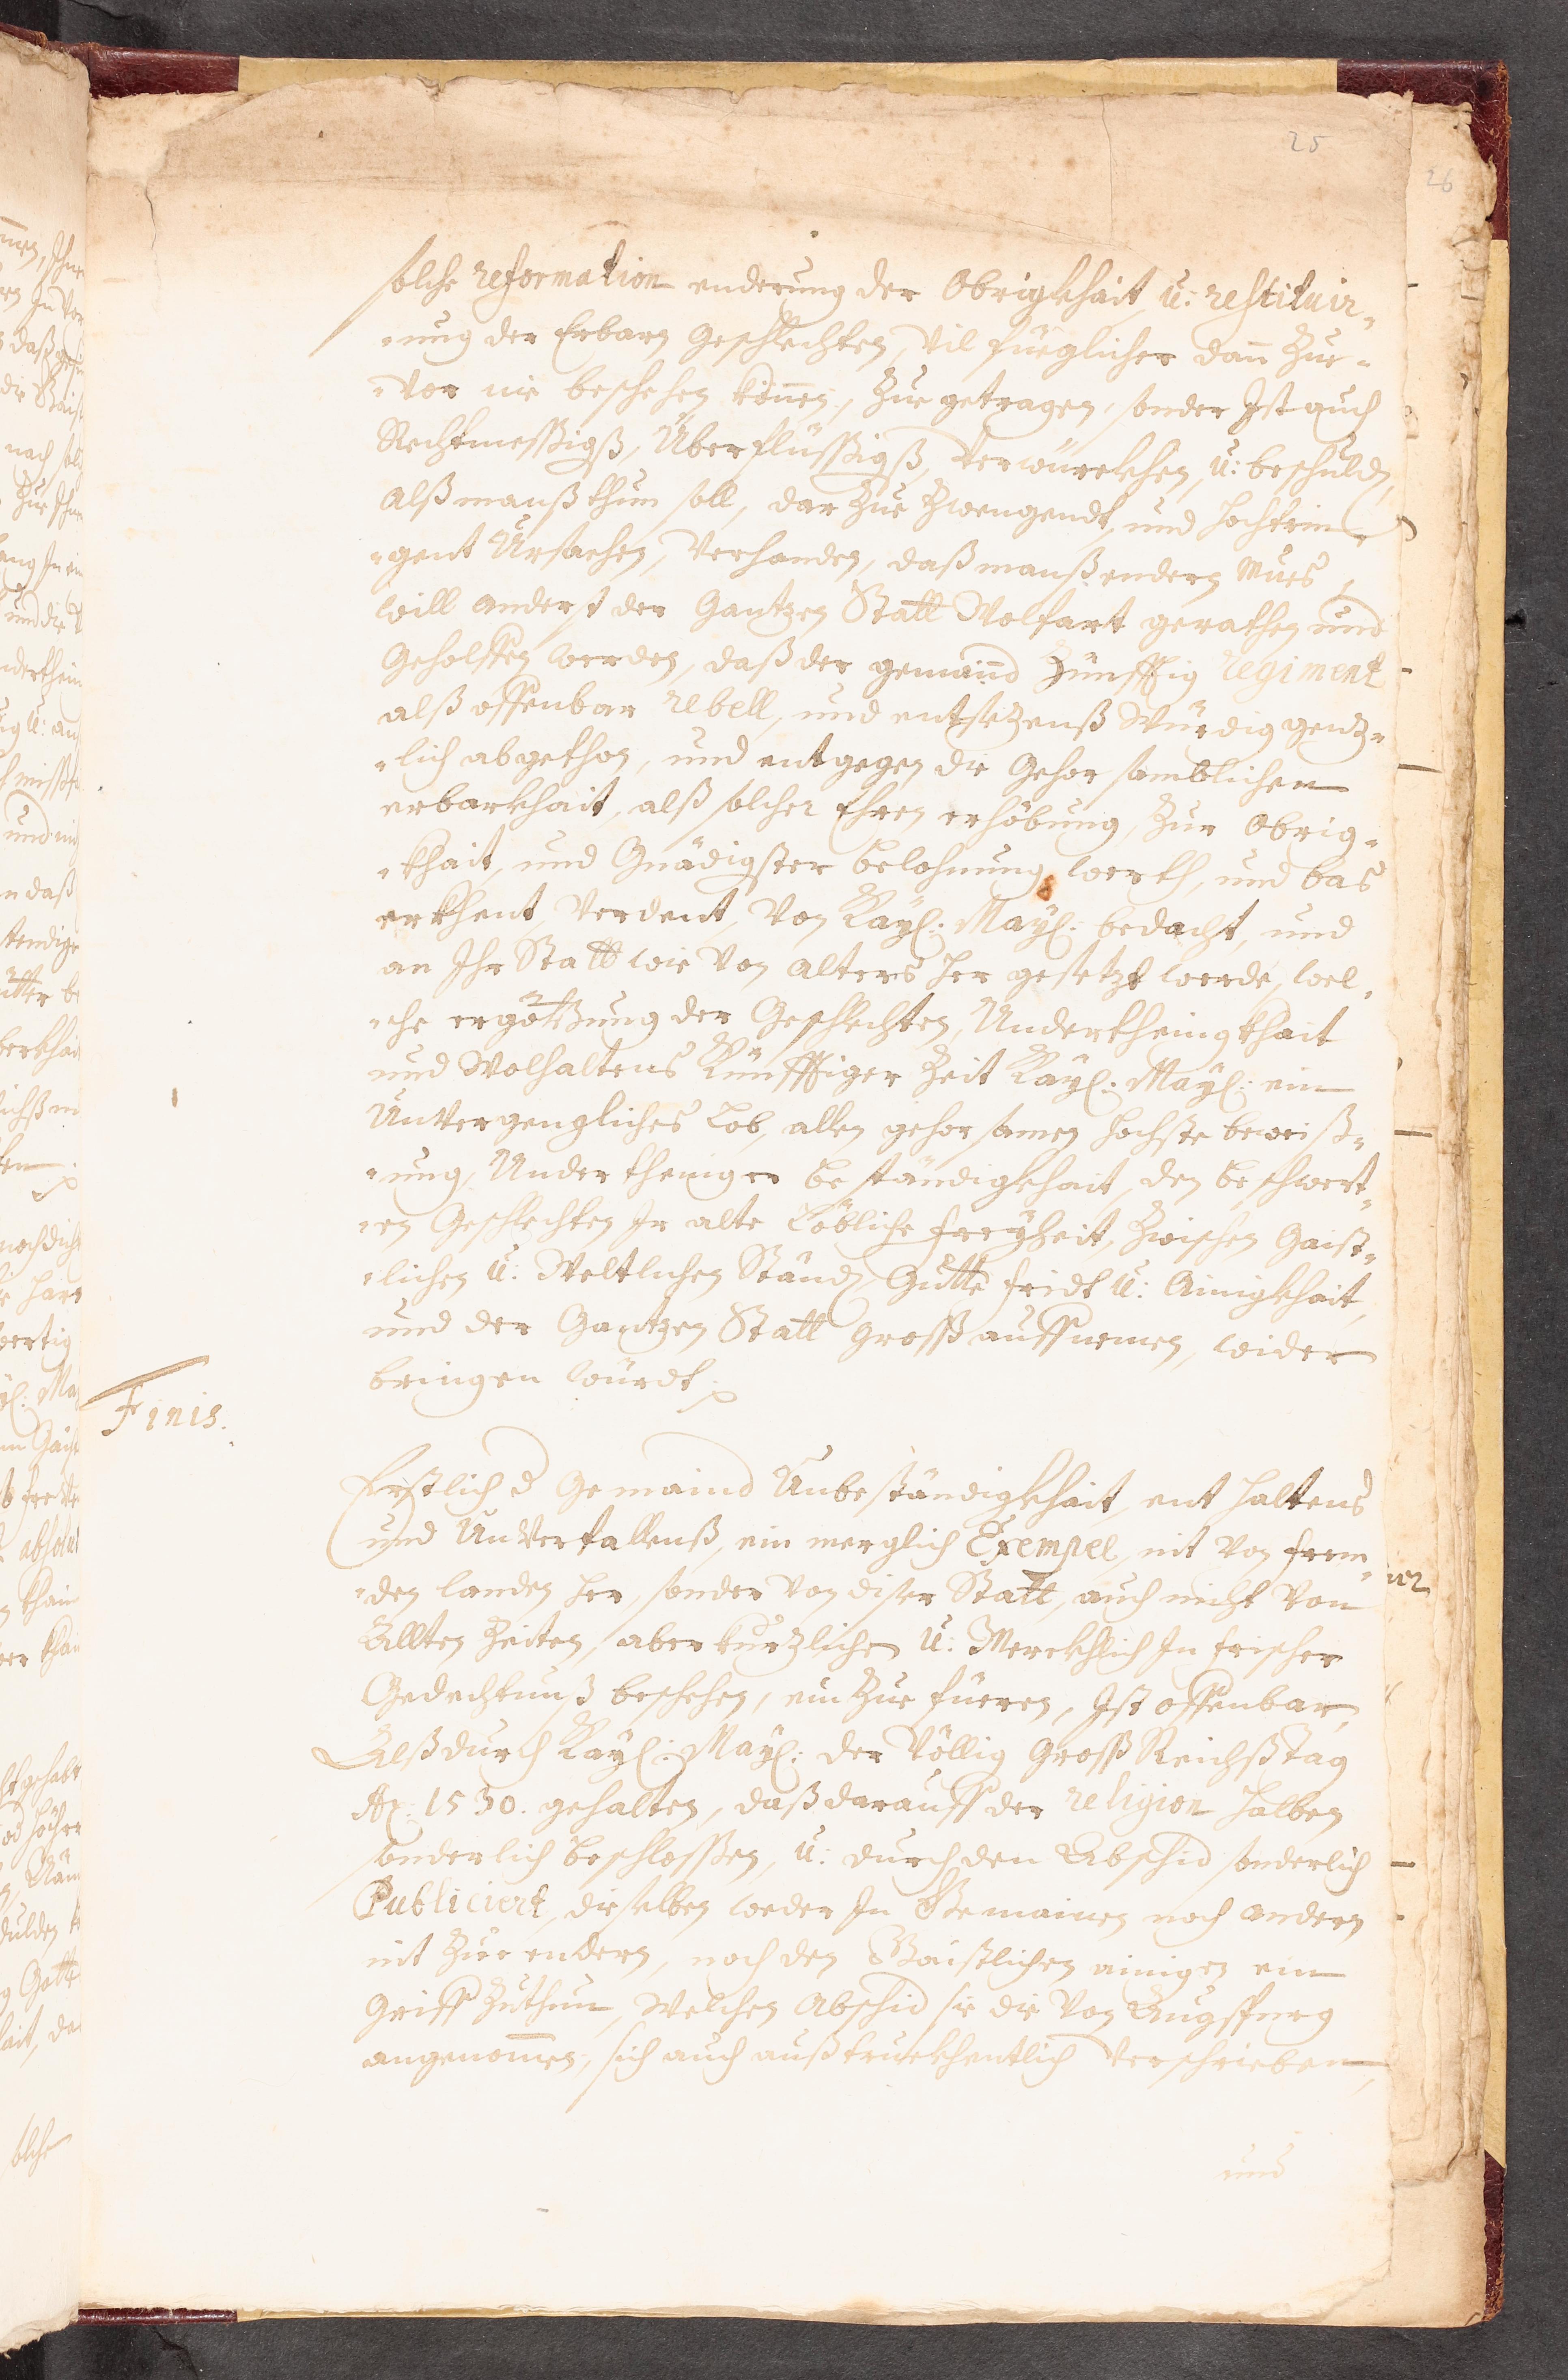 25
26
solche reformation enderung der Obrigkhait, u: restituir-
-ung der Erbarn Geschlechten, vil füeglicher dann zue-
-vor nie beschehen können, zue getragen, sonder Ist auch
Rechtmessßigß, Überflüssßigß, verwürckhen, u: beschulden,
alß manß thun soll, dar zue zwengendt, und hochtrin-
-gent Ursachen, verhanden, daß manß endern mues,
will anderst der Gantzen Statt Wolfart gerathen und
Geholffen werden, daß der gemaind Zünfftig regiment
alß offenbar rebell, und entsezenß würdig gentz-
-lich abgethon, und entgegen die Gehorsamblichen
erbarkhait, alß solcher Ehren erhöbung, zur Obrig-
-khait, und Gnädigster belohnung werth, und bas
erkhent, verdient, von Kayl: Mayl: bedacht, und
an Ihr Statt wie von alters her gesetzt werde, wel-
-che ergötzung der Geschlechten, Underthenigkhait
und Wolhaltens Künfftiger Zeit Kayl: Mayl: ein
Unvergengliches Lob, allen gehorsamen hochste beweiß-
-ung, Undertheniger beständigkhait, den beschwert-
-en Geschlechten Ir alte Löbliche freyheit, zwischen Gaist-
-lichen u: Weltlichen Ständen, Gutte fridt u: Ainigkhait,
und der Gantzen Statt Grosß auffnemen, wider
bringen würdt.
Finis.
Erstlich d Gemaind Unbeständigkhait, ent haltens
und Unverfallenß, ein merglich Exempel, nit von frem-
-den landen her, sonder von diser Statt, auch nicht von
Allten Zeiten, aber kurzlichen u: Merckhlich In frischer
Gedechtnuß beschehen, ein zue füeren, Ist offenbar,
Alß durch Kayl: Mayl: der Völlig Grosß Reichßtag
Ao: 1530. gehalten, daß darauff der religion halben
sonderlich beschlossßen, u: durch den Abschid sonderlich
Publiciert, dieselben weder In Gemainen noch andern
nit zue endern, noch den Gaistlichen ainigen ein
Griff zuthun, Welchen Abschid sie die von Augspurg
angenommen, sich auch außtruckhentlich verschrieben,
und